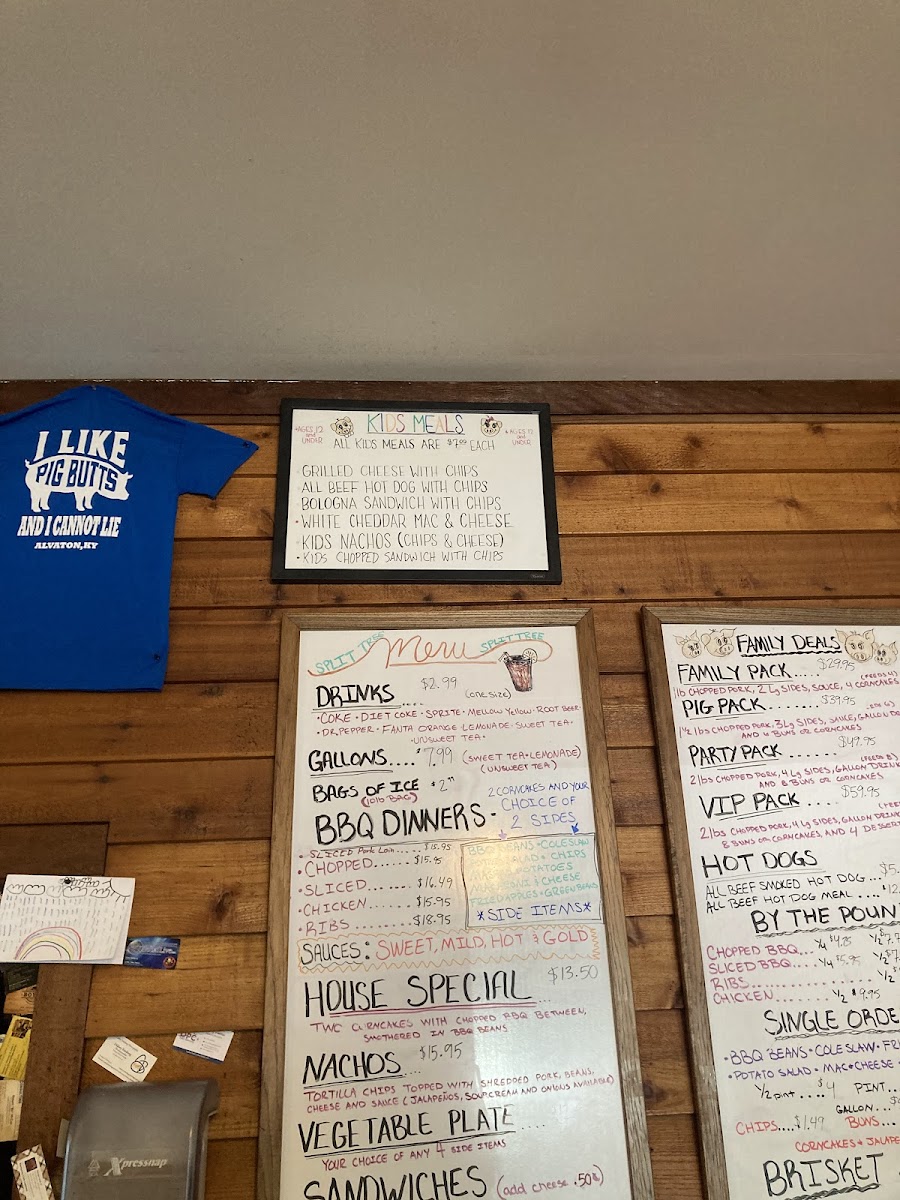 I LIKE
PIG BUTTS
AND I CANNOT LIE
ALVATON, KY
KIDS MEALS
*AGES 12 and UNDER
*AGES 12 and UNDER
ALL KIDS MEALS ARE $7.99 EACH
• GRILLED CHEESE WITH CHIPS
ALL BEEF HOT DOG WITH CHIPS
BOLOGNA SANDWICH WITH CHIPS
• WHITE CHEDDAR MAC & CHEESE
• KIDS NACHOS (CHIPS & CHEESE)
• KIDS CHOPPED SANDWICH WITH CHIPS
SPLIT TREE Menu SPLIT TREE
DRINKS $2.99 (ONE SIZE)
• COKE • DIET COKE • SPRITE • MELLOW YELLOW • ROOT BEER
• DR. PEPPER • FANTA ORANGE • LEMONADE • SWEET TEA •
• UNSWEET TEA •
GALLONS.... $7.99 (SWEET TEA • LEMONADE)
(UNSWEET TEA)
BAGS OF ICE $2
(10lb BAG)
BBQ DINNERS -
2 CORNCAKES AND YOUR
CHOICE OF
2 SIDES
• SLICED Pork Loin..... $15.95
• CHOPPED....... $15.95
• SLICED....... $16.49
• CHICKEN..... $15.95
• RIBS....... $18.95
BBQ BEANS • COLESLAW
CHIPS
CHEESE
FRIED APPLES • GREEN BEANS
*SIDE ITEMS*
SAUCES: SWEET, MILD, HOT & GOLD
HOUSE SPECIAL... $13.50
TWO CORNCAKES WITH CHOPPED BBQ BETWEEN,
SMOTHERED IN BBQ BEANS
NACHOS.... $15.95
TORTILLA CHIPS TOPPED WITH SHREDDED PORK, BEANS,
CHEESE AND SAUCE (JALAPEÑOS, SOUR CREAM AND ONIONS AVAILABLE)
VEGETABLE PLATE....
YOUR CHOICE OF ANY 4 SIDE ITEMS
SANDWICHES (add cheese .50¢)
FAMILY DEALS
FAMILY PACK.... $29.95
(FEEDS 4)
1lb CHOPPED PORK, 2 Lg SIDES, SAUCE, 4 CORNCAKES
PIG PACK..... $39.95
1½ lbs CHOPPED PORK, 3 Lg SIDES, SAUCE, GALLON
AND 6 BUNS OR CORNCAKES
PARTY PACK..... $49.95
2 lbs CHOPPED PORK, 4 Lg SIDES, GALLON DRINK
AND 8 BUNS OR CORNCAKES
VIP PACK.... $59.95
2 lbs CHOPPED PORK, 4 Lg SIDES, GALLON
8 BUNS OR CORNCAKES, AND 4
HOT DOGS
ALL BEEF SMOKED HOT DOG...
ALL BEEF HOT DOG MEAL....
BY THE
CHOPPED BBQ... ¼ $4.25 ½
SLICED BBQ.... ¼ $5.95 ½
RIBS............... ½
CHICKEN........... ½ $9.95
SINGLE
• BBQ BEANS • COLESLAW •
• POTATO SALAD • MAC & CHEESE
½ pint.... $4 PINT..
GALLON...
CHIPS.... $1.49 BUNS....
CORNCAKES &
BRISKET
Xpressnap